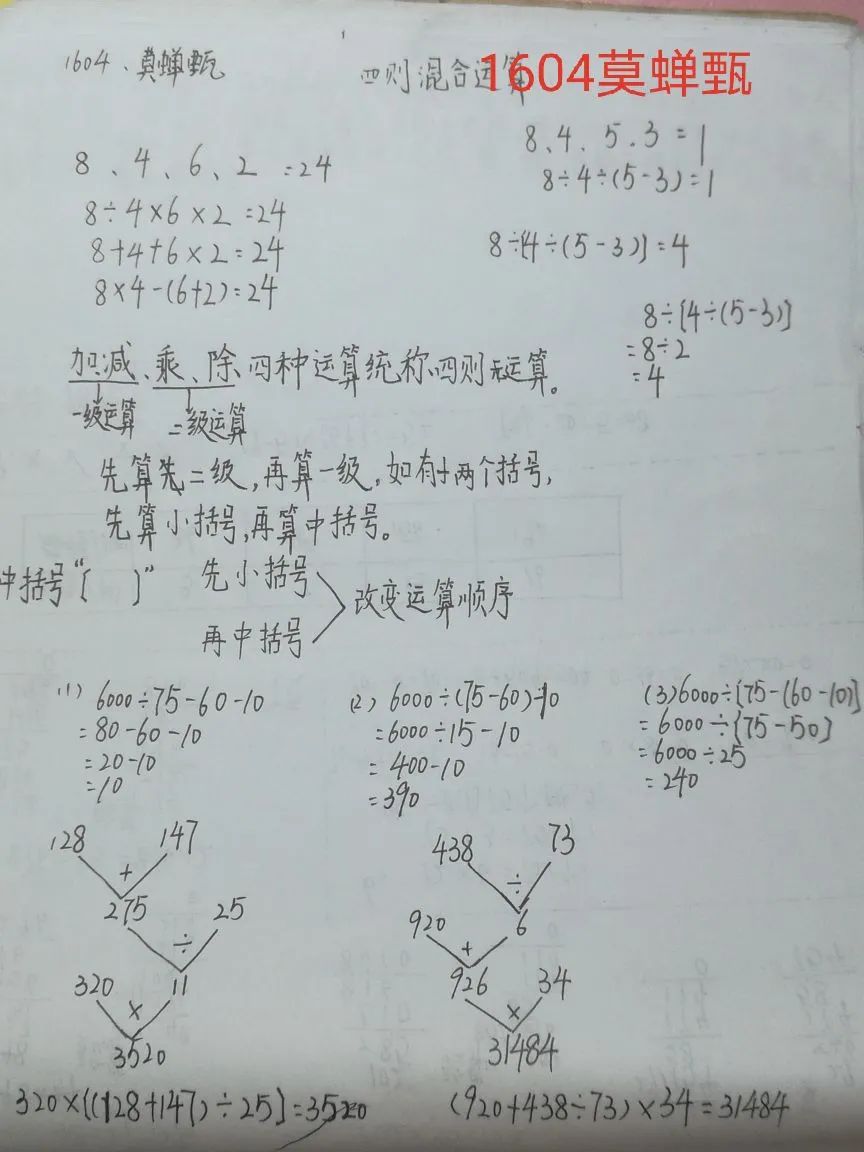 1604、莫蝉甄
四则混合运算
1604莫蝉甄
8、4、6、2 =24
8÷4×6×2=24
8+4+6×2=24
8×4-(6+2)=24
8、4、5、3=1
8÷4÷(5-3)=1
8÷[4÷(5-3)]=4
8÷[4÷(5-3)]
=8÷2
=4
加减、乘、除四种运算统称四则运算。
一级运算 二级运算
先算先二级,再算一级,如有两个括号,
先算小括号,再算中括号。
中括号“[ ]” 先小括号
再中括号
改变运算顺序
(1) 6000÷75-60-10
=80-60-10
=20-10
=10
(2) 6000÷(75-60)-10
=6000÷15-10
=400-10
=390
(3)6000÷[75-(60-10)]
=6000÷[75-50]
=6000÷25
=240
128 147
+
275 25
÷
320 11
×
3520
320×[(128+147)÷25]=3520
438 73
÷
920 6
+
926 34
×
31484
(920+438÷73)×34=31484